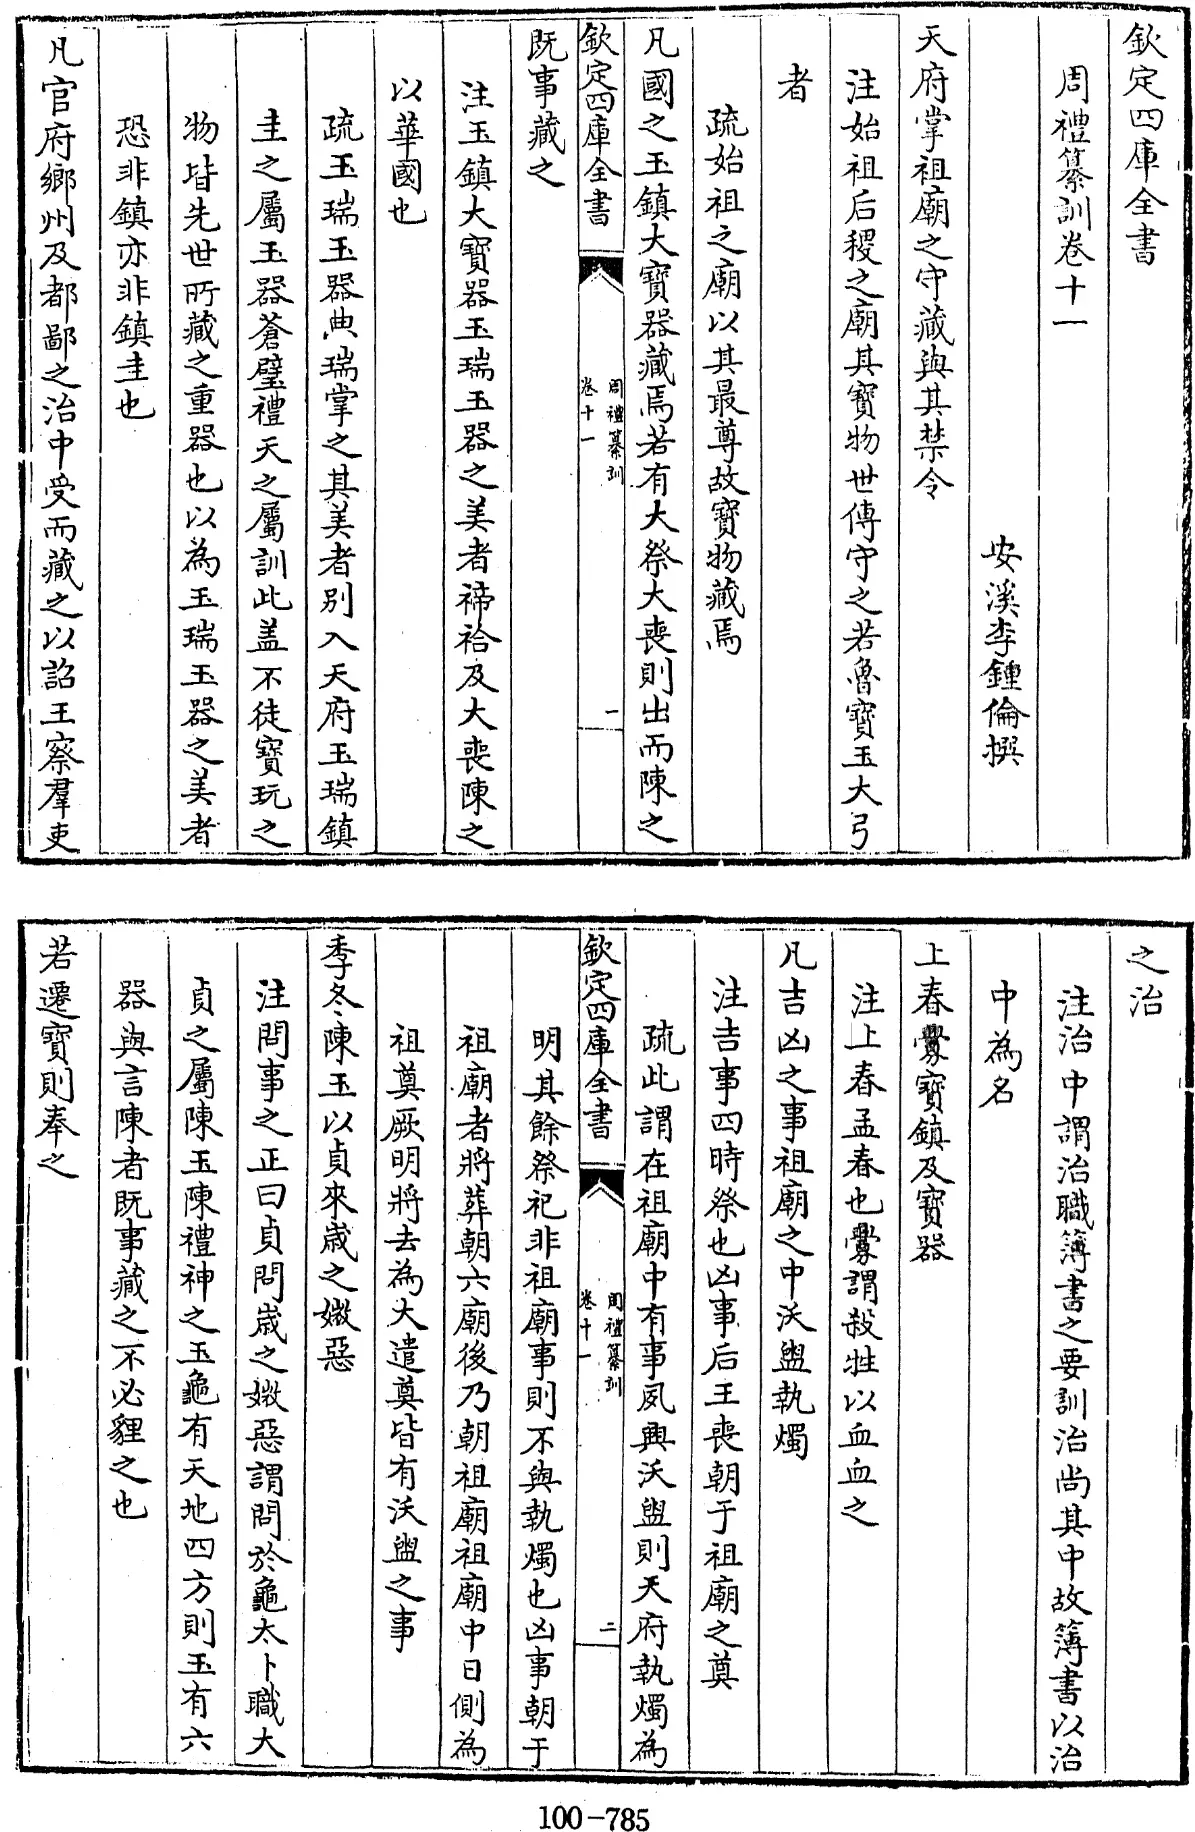 欽定四庫全書
周禮纂訓卷十一
安溪李鍾倫撰
天府掌祖廟之守藏與其禁令
注始祖后稷之廟其寶物世傳守之若魯寶玉大弓
者
疏始祖之廟以其最尊故寶物藏焉
凡國之玉鎮大寶器藏焉若有大祭大喪則出而陳之
欽定四庫全書
周禮纂訓
卷十一
一
既事藏之
注玉鎮大寶器玉瑞玉器之美者禘祫及大喪陳之
以華國也
疏玉瑞玉器典瑞掌之其美者別入天府玉瑞鎮
圭之屬玉器蒼璧禮天之屬訓此盖不徒寶玩之
物皆先世所藏之重器也以為玉瑞玉器之美者
恐非鎮亦非鎮圭也
凡官府鄉州及都鄙之治中受而藏之以詔王察羣吏
之治
注治中謂治職簿書之要訓治尚其中故簿書以治
中為名
上春釁寶鎮及寶器
注上春孟春也釁謂殺牲以血血之
凡吉凶之事祖廟之中沃盥執燭
注吉事四時祭也凶事后王喪朝于祖廟之奠
疏此謂在祖廟中有事夙興沃盥則天府執燭為
欽定四庫全書
周禮纂訓
卷十一
二
明其餘祭祀非祖廟事則不與執燭也凶事朝于
祖廟者將葬朝六廟後乃朝祖廟祖廟中日側為
祖奠厥明將去為大遣奠皆有沃盥之事
季冬陳玉以貞來嵗之媺惡
注問事之正曰貞問嵗之媺惡謂問於龜太卜職大
貞之屬陳玉陳禮神之玉龜有天地四方則玉有六
器與言陳者既事藏之不必貍之也
若遷寶則奉之
100-785